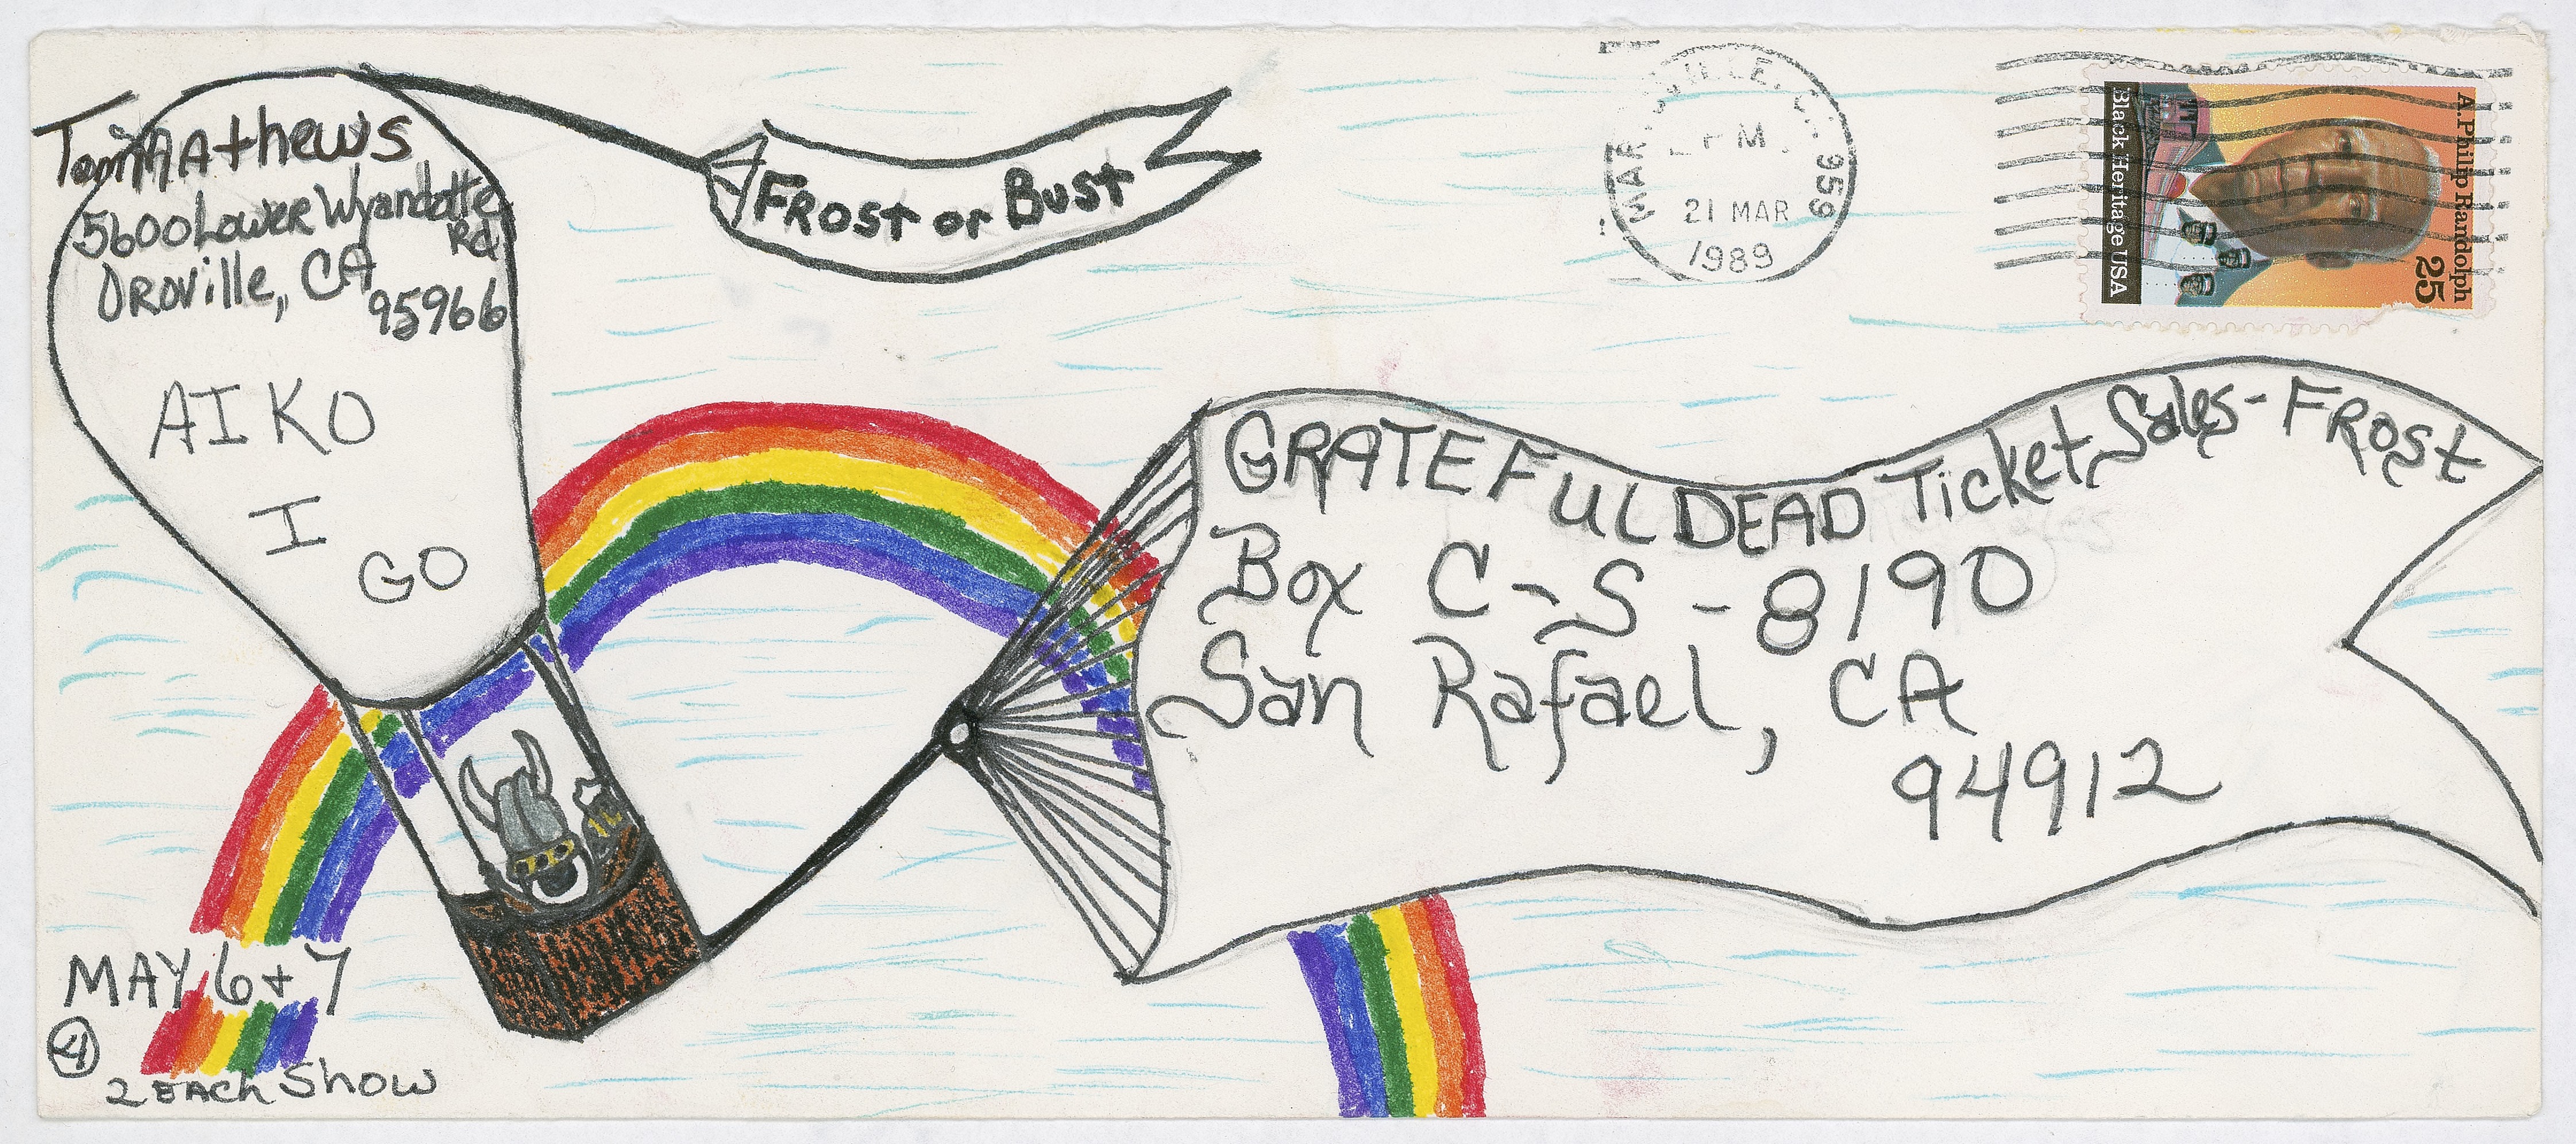 Tom Mathews
5600 Lower Wyandotte
Rd
Oroville, CA
95966
AIKO
I
GO
Frost or Bust
PM
21 MAR
1989
959
A. Philip Randolph
25
Black Heritage USA
GRATEFUL DEAD Ticket Sales - Frost
Box C-S-8190
San Rafael, CA
94912
MAY 6 + 7
4
2 EACH Show